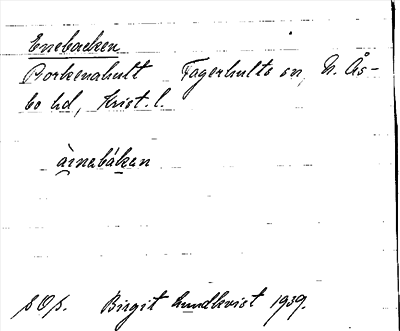 Enebacken
Borkenahult Fagerhults sn, N. Ås-
bo hd, Krist. l.
àinabákan
sOp. Birgit Lundkvist 1939.